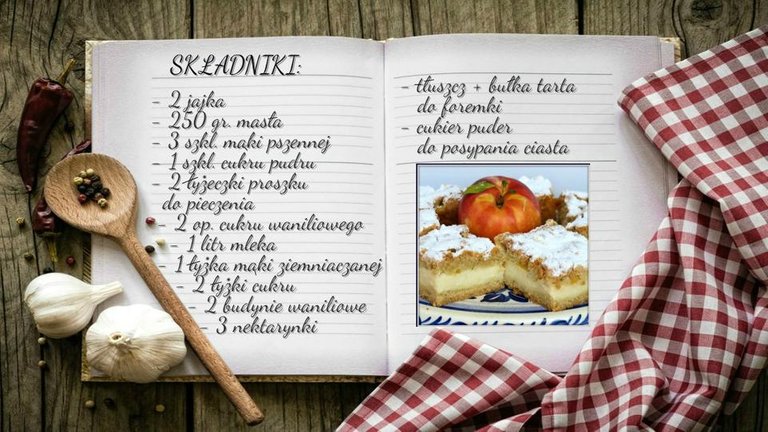 SKŁADNIKI:
- 2 jajka
- 250 gr. masła
- 3 szkl. mąki pszennej
- 1 szkl. cukru pudru
- 2 łyżeczki proszku
do pieczenia
- 2 op. cukru waniliowego
- 1 litr mleka
- 1 łyżka mąki ziemniaczanej
- 2 łyżki cukru
- 2 budynie waniliowe
- 3 nektarynki
- tłuszcz + bułka tarta
do foremki
- cukier puder
do posypania ciasta